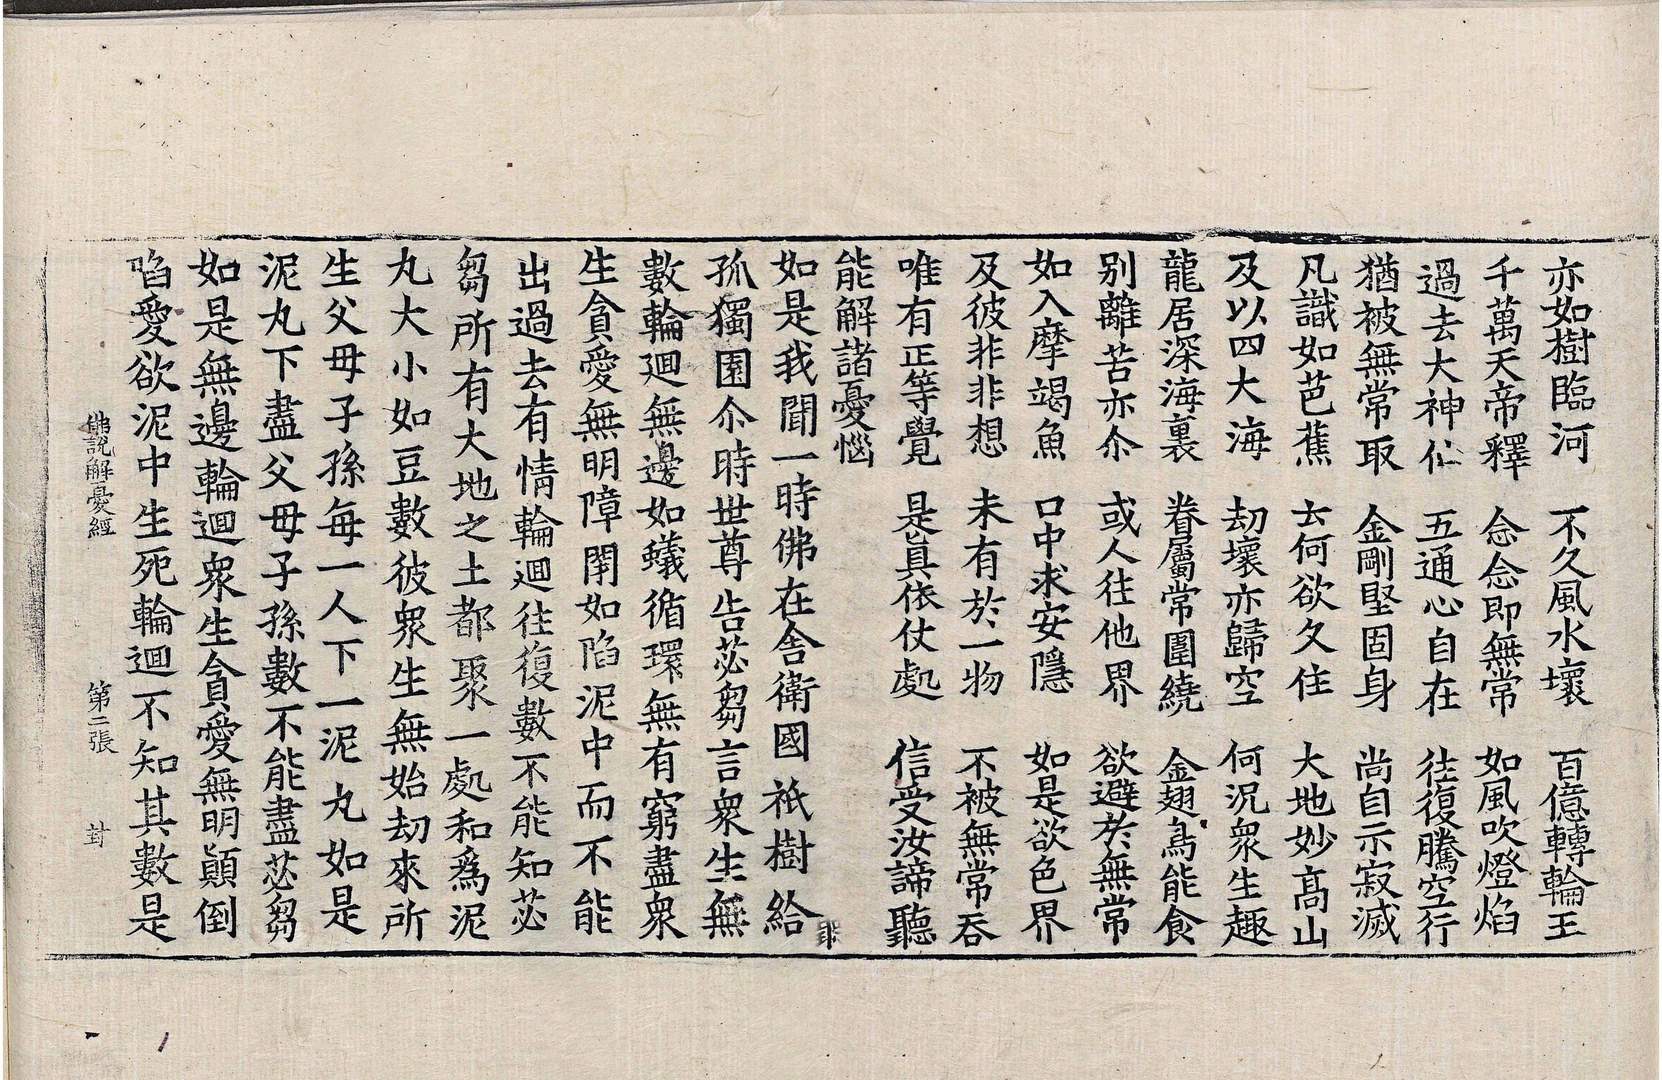 亦如樹臨河　不久風水壞　百億轉輪王
千萬天帝釋　念念即無常　如風吹燈焰
過去大神仙　五通心自在　往復騰空行
猶被無常取　金剛堅固身　尚自示寂滅
凡識如芭蕉　云何欲久住　大地妙高山
及以四大海　劫壞亦歸空　何況衆生趣
龍居深海裏　眷屬常圍繞　金翅鳥能食
別離苦亦尒　或人往他界　欲避於無常
如入摩竭魚　口中求安隱　如是欲色界
及彼非非想　未有於一物　不被無常吞
唯有正等覺　是真依仗處　信受汝諦聽
能解諸憂惱
如是我聞一時佛在舍衛國祇樹給
孤獨園尒時世尊告苾芻言衆生無
數輪迴無邊如蟻循環無有窮盡衆
生貪愛無明障閇如陷泥中而不能
出過去有情輪迴往復數不能知苾
芻所有大地之土都聚一處和為泥
丸大小如豆數彼衆生無始劫來所
生父母子孫每一人下一泥丸如是
泥丸下盡父母子孫數不能盡苾芻
如是無邊輪迴衆生貪愛無明顛倒
陷愛欲泥中生死輪迴不知其數是
佛說解憂經　第二張　封